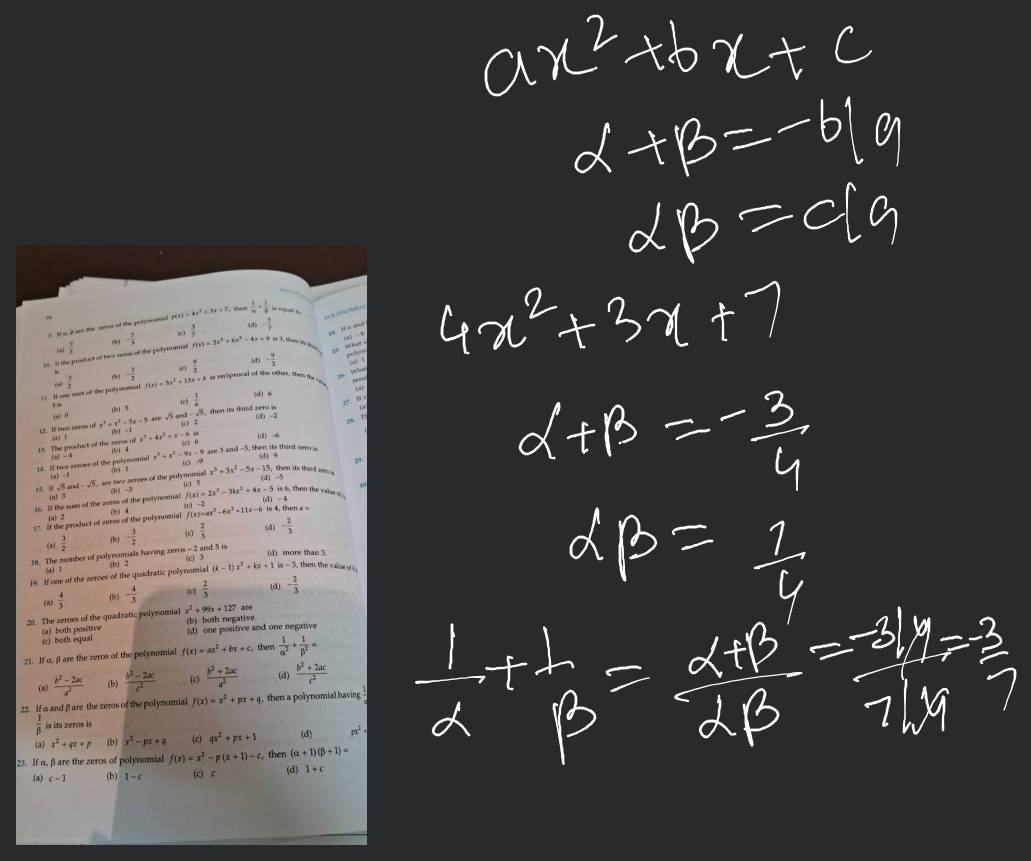 ax² + bx + c
α + β = -b/a
αβ = c/a
4x² + 3x + 7
α + β = -3/4
αβ = 7/4
1/α + 1/β = (α+β)/(αβ) = (-3/4)/(7/4) = -3/7
34
9. If α, β are the zeros of the polynomial p(x) = 4x² + 3x + 7, then 1/α + 1/β is equal to
(a) 7/3 (b) -7/3 (c) 3/7 (d) -3/7
10. If the product of two zeros of the polynomial f(x) = 2x³ + 6x² - 4x + 9 is 3, then its third
is
(a) 3/2 (b) -3/2 (c) 9/2 (d) -9/2
11. If one root of the polynomial f(x) = 5x² + 13x + k is reciprocal of the other, then the
k is
(a) 0 (b) 5 (c) 1/6 (d) 6
12. If two zeros of x³ + x² - 5x - 5 are √5 and -√5, then its third zero is
(a) 1 (b) -1 (c) 2 (d) -2
13. The product of the zeros of x³ + 4x² + x - 6 is
(a) -4 (b) 4 (c) 6 (d) -6
14. If two zeroes of the polynomial x³ + x² - 9x - 9 are 3 and -3, then its third zero is
(a) -1 (b) 1 (c) -9 (d) 9
15. If √5 and -√5, are two zeroes of the polynomial x³ + 3x² - 5x - 15, then its third zero is
(a) 3 (b) -3 (c) 5 (d) -5
16. If the sum of the zeros of the polynomial f(x) = 2x³ - 3kx² + 4x - 5 is 6, then the value of
(a) 2 (b) 4 (c) -2 (d) -4
17. If the product of zeros of the polynomial f(x) = ax³ - 6x² + 11x - 6 is 4, then a =
(a) 3/2 (b) -3/2 (c) 2/3 (d) -2/3
18. The number of polynomials having zeros -2 and 5 is
(a) 1 (b) 2 (c) 3 (d) more than 3.
19. If one of the zeroes of the quadratic polynomial (k - 1)x² + kx + 1 is -3, then the value of k
(a) 4/3 (b) -4/3 (c) 2/3 (d) -2/3
20. The zeroes of the quadratic polynomial x² + 99x + 127 are
(a) both positive (b) both negative
(c) both equal (d) one positive and one negative
21. If α, β are the zeros of the polynomial f(x) = ax² + bx + c, then 1/α² + 1/β² =
(a) (b² - 2ac)/a² (b) (b² - 2ac)/c² (c) (b² + 2ac)/a² (d) (b² + 2ac)/c²
22. If α and β are the zeros of the polynomial f(x) = x² + px + q, then a polynomial having 1/α
1/β is its zeros is
(a) x² + qx + p (b) x² - px + q (c) qx² + px + 1 (d) px² +
23. If α, β are the zeros of polynomial f(x) = x² - p(x + 1) - c, then (α + 1)(β + 1) =
(a) c - 1 (b) 1 - c (c) c (d) 1 + c